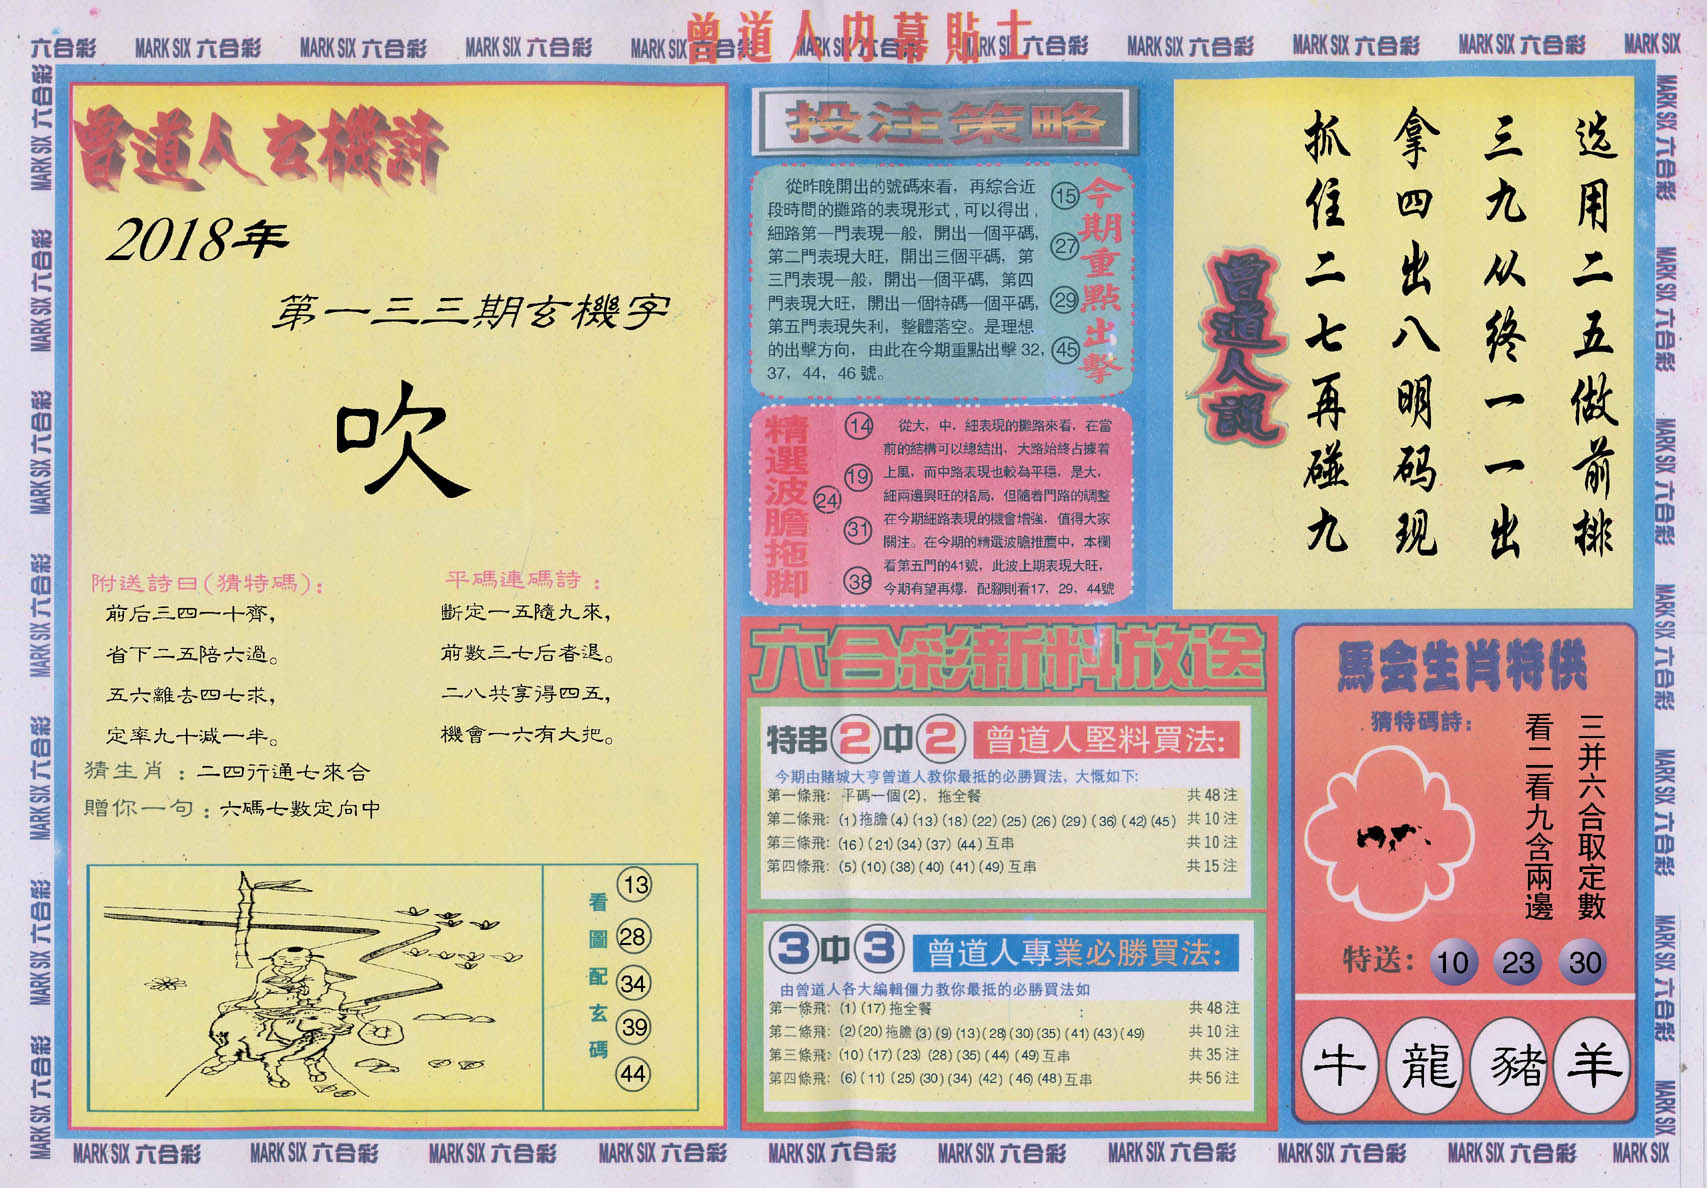 曾道人内幕貼士
六合彩 MARK SIX 六合彩 MARK SIX 六合彩 MARK SIX 六合彩 MARK SIX 六合彩 MARK SIX 六合彩 MARK SIX 六合彩 MARK SIX 六合彩 MARK SIX 六合彩 MARK SIX 六合彩 MARK SIX
曾道人玄機詩
2018年
第一三三期玄機字
吹
附送詩曰(猜特碼):
前后三四一十齊,
省下二五陪六過。
五六離去四七求,
定率九十減一半。
平碼連碼詩:
斷定一五隨九來,
前數三七后者退。
二八共享得四五,
機會一六有大把。
猜生肖:二四行通七來合
贈你一句:六碼七數定向中
看圖配玄碼
13
28
34
39
44
投注策略
從昨晚開出的號碼來看,再綜合近
段時間的攤路的表現形式,可以得出,
細路第一門表現一般,開出一個平碼,
第二門表現大旺,開出三個平碼,第
三門表現一般,開出一個平碼,第四
門表現大旺,開出一個特碼一個平碼,
第五門表現失利,整體落空。是理想
的出擊方向,由此在今期重點出擊32,
37,44,46號。
15
27
29
45
今期重點出擊
精選波膽拖脚
14
19
24
31
38
從大,中,細表現的攤路來看,在當
前的結構可以總結出,大路始終占據着
上風,而中路表現也較為平穩,是大,
細兩邊興旺的格局,但隨着門路的調整
在今期細路表現的機會增強,值得大家
關注。在今期的精選波膽推薦中,本欄
看第五門的41號,此波上期表現大旺,
今期有望再爆,配腳則看17,29,44號
六合彩新料放送
特串2中2 曾道人堅料買法:
今期由賭城大亨曾道人教你最抵的必勝買法,大慨如下:
第一條飛: 平碼一個(2),拖全餐 共48注
第二條飛: (1)拖膽(4)(13)(18)(22)(25)(26)(29)(36)(42)(45) 共10注
第三條飛: (16)(21)(34)(37)(44)互串 共10注
第四條飛: (5)(10)(38)(40)(41)(49)互串 共15注
3中3 曾道人專業必勝買法:
由曾道人各大編輯僵力教你最抵的必勝買法如
第一條飛: (1)(17)拖全餐 共48注
第二條飛: (2)(20)拖膽(3)(9)(13)(28)(30)(35)(41)(43)(49) 共10注
第三條飛: (10)(17)(23)(28)(35)(44)(49)互串 共35注
第四條飛: (6)(11)(25)(30)(34)(42)(46)(48)互串 共56注
选用二五做前排
三九从终一一出
拿四出八明码现
抓住二七再碰九
曾道人說
馬会生肖特供
猜特碼詩:
三并六合取定數
看二看九含兩邊
特送: 10 23 30
牛 龍 豬 羊
MARK SIX 六合彩 MARK SIX 六合彩 MARK SIX 六合彩 MARK SIX 六合彩 MARK SIX 六合彩 MARK SIX 六合彩 MARK SIX 六合彩 MARK SIX 六合彩 MARK SIX 六合彩 MARK SIX
MARK SIX 六合彩 MARK SIX 六合彩 MARK SIX 六合彩 MARK SIX 六合彩 MARK SIX 六合彩 MARK SIX 六合彩 MARK SIX 六合彩
MARK SIX 六合彩 MARK SIX 六合彩 MARK SIX 六合彩 MARK SIX 六合彩 MARK SIX 六合彩 MARK SIX 六合彩 MARK SIX